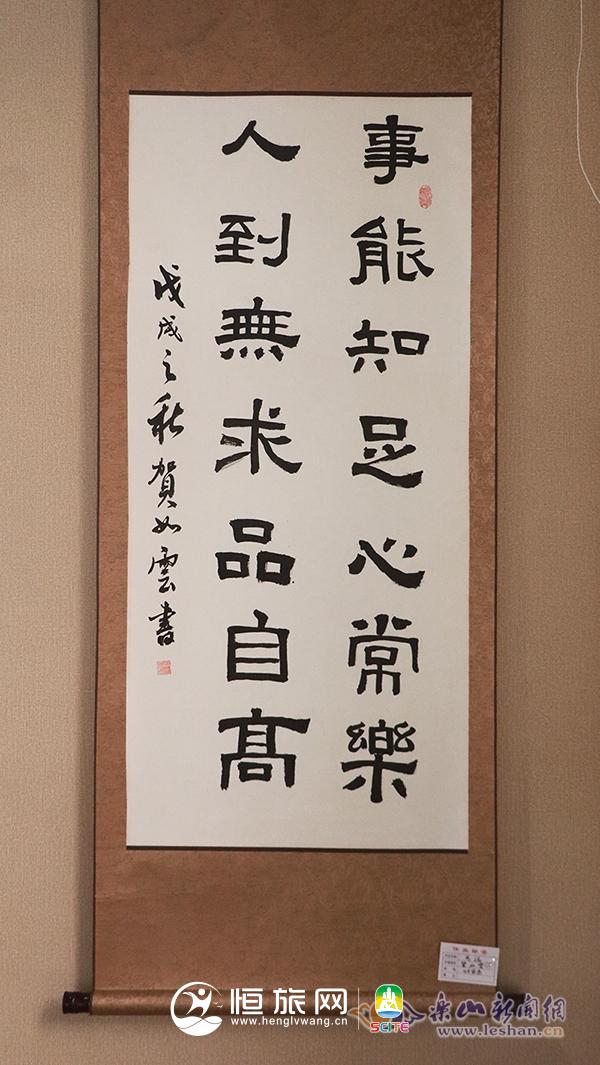 事能知足心常樂
人到無求品自高
戊戌之秋賀如雲書
恒旅网
www.henglvwang.cn
SCITE
乐山新闻網
www.leshan.cn